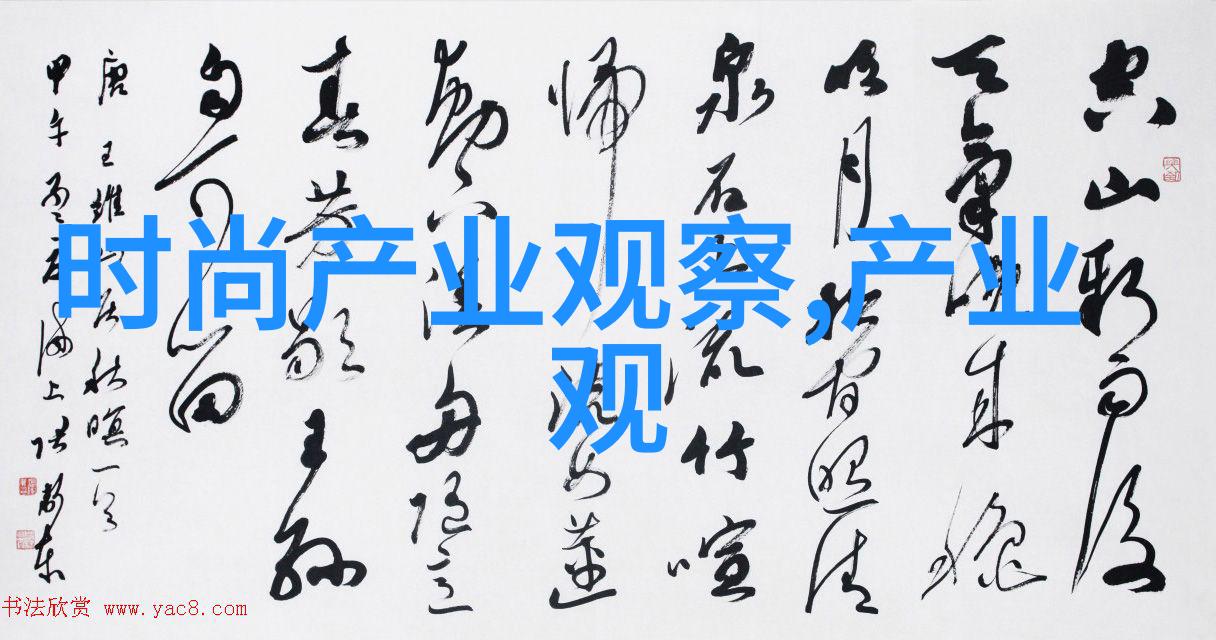 时尚产业观察,产业
观
空山新雨後
天氣晚来秋
明月松间照清
泉石上流竹喧
歸浣女蓮
動下渔舟随意
春芳歇王孫
自可留
唐王維山居秋暝一首
甲午夏海上张东
书法欣赏 www.yac8.com